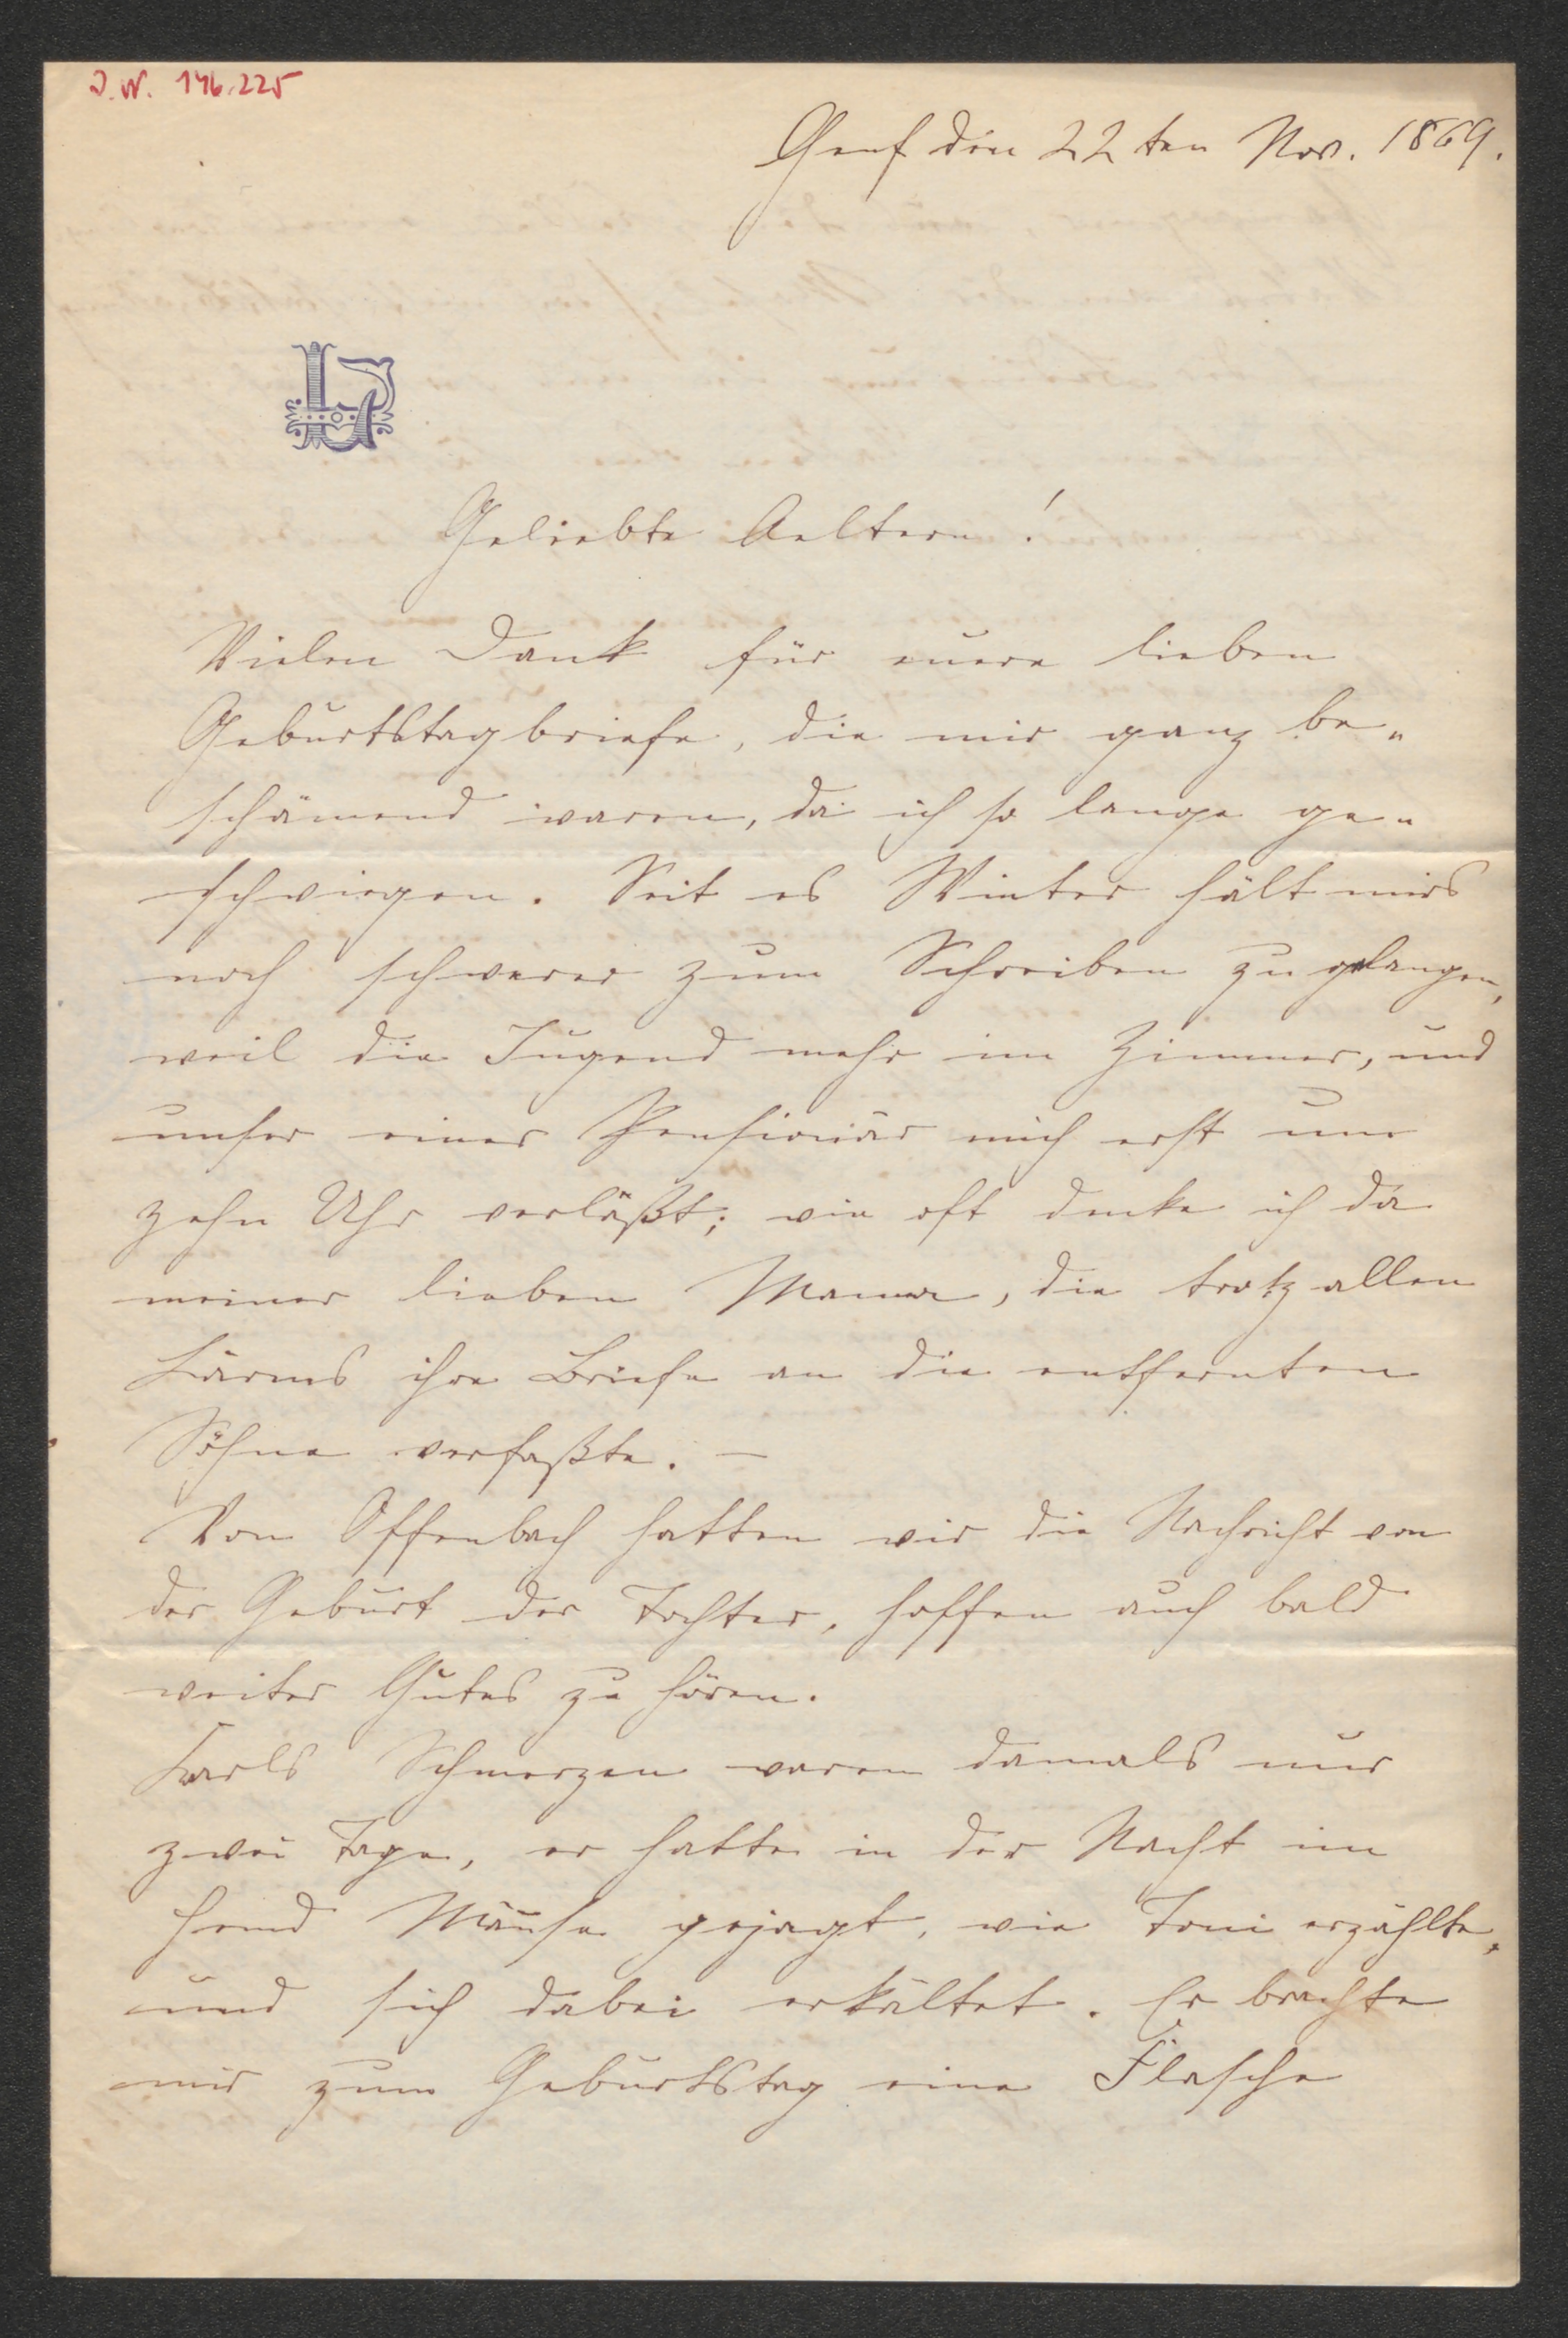 J.N. 146.225
Genf den 22ten Nov. 1869.
Geliebte Aeltern!
Vielen Dank für euere lieben
Geburtstagbriefe, die mir ganz be„
schämend waren, da ich so lange ge„
schwiegen. Seit es Winter hält mirs
noch schwerer zum Schreiben zu gelangen,
weil die Jugend mehr im Zimmer, und
unser einer Pensionär mich erst um
zehn Uhr verläßt; wie oft denke ich da
meiner lieben Mama, die trotz allen
Lärms ihre Briefe an die entfernten
Söhne verfaßte. –
Von Offenbach hatten wir die Nachricht von
der Geburt der Tochter, hoffen auch bald
weiter Gutes zu hören.
Karls Schmerzen waren damals nur
zwei Tage, er hatte in der Nacht im
Hemd Mäuse gejagt, wie Toni erzählte,
und sich dabei erkältet. Er brachte
mir zum Geburtstag eine Flasche